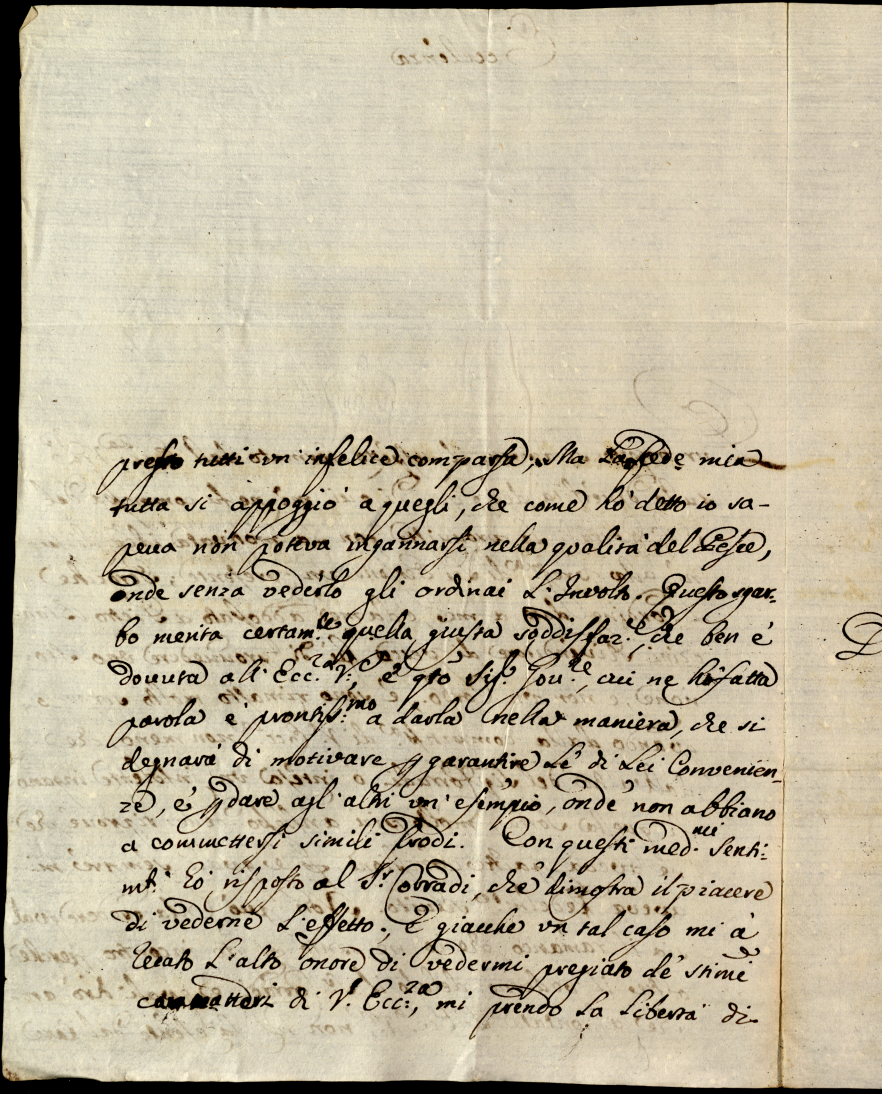 presso tutti un' infelice comparsa; Ma La fede mia
tutta si appoggiò a quegli, che come hò detto io sa-
peva non poteva ingannarsi nella qualità del Pesce,
onde senza vederlo gli ordinai L'Involto. Questo sgar-
bo merita certam.te quella giusta soddisfaz.e, che ben è
dovuta all' Ecc.za V.a, e q̃to Sig.r Gov.re, cui ne hò fatta
parola è prontiss.mo a darla nella maniera, che si
degnarà di motivare p garantire Le di Lei Convenien-
ze, e p dare agl' altri un' esempio, onde non abbiano
a commettersi simili frodi. Con questi med.mi senti-
m.ti hò risposto al S.r Corradi, che dimostra il piacere
di vederne L'effetto; E giacche un tal caso mi à
recato L'alto onore di vedermi pregiato de' stim.mi
caratteri di V.a Ecc.za, mi prendo La Libertà di